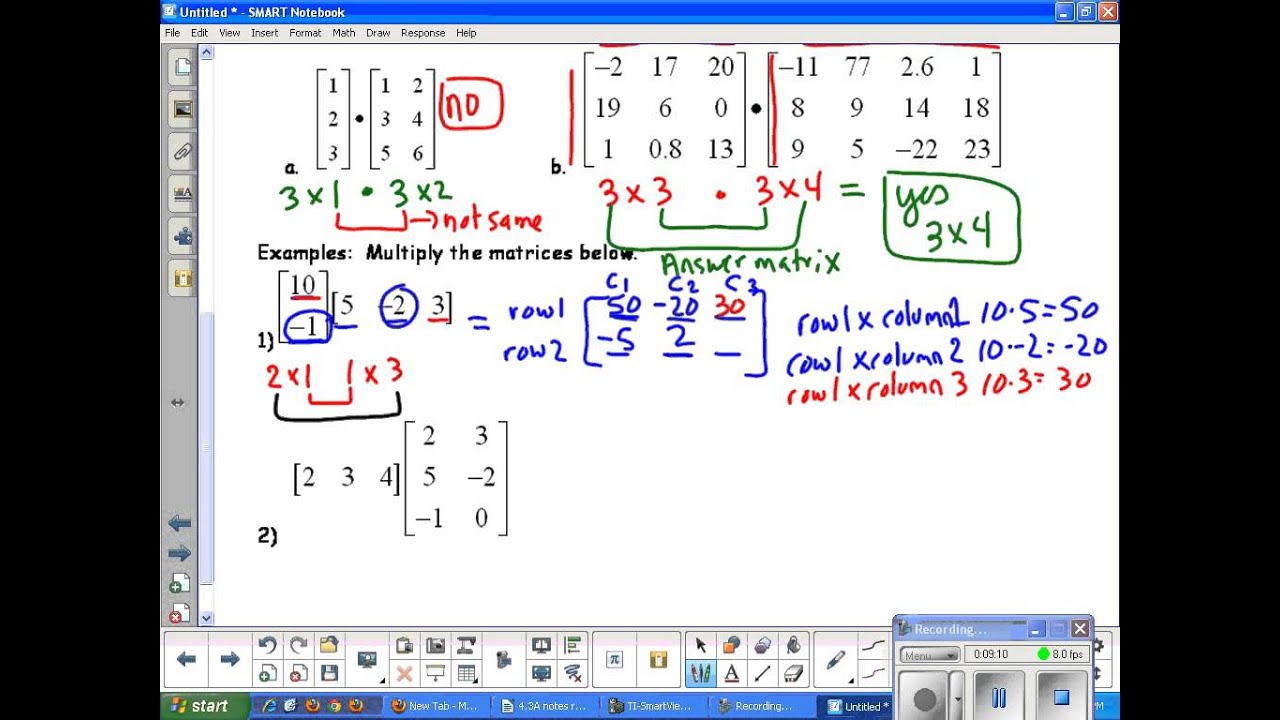 Untitled * - SMART Notebook
File Edit View Insert Format Math Draw Response Help
a. [1 2 3] • [1 2 3 4 5 6] no
3 x 1 • 3 x 2
→ not same
b. [-2 17 20
19 6 0
1 0.8 13] • [-11 77 2.6 1
8 9 14 18
9 5 -22 23]
3 x 3 • 3 x 4 = yes
3 x 4
Answer matrix
Examples: Multiply the matrices below.
1) [10
-1] [5 -2 3] =
C1 C2 C3
row 1 [50 -20 30
row 2 -5 2 _]
2 x 1 1 x 3
row 1 x column 1 10·5=50
row 1 x column 2 10·-2=-20
row 1 x column 3 10·3=30
2) [2 3 4] [2 3
5 -2
-1 0]
Recording...
Menu
0:09:10 8.0 fps
start
New Tab - M...
4.3A notes r...
TI-SmartVie...
Recording...
Untitled *
PM